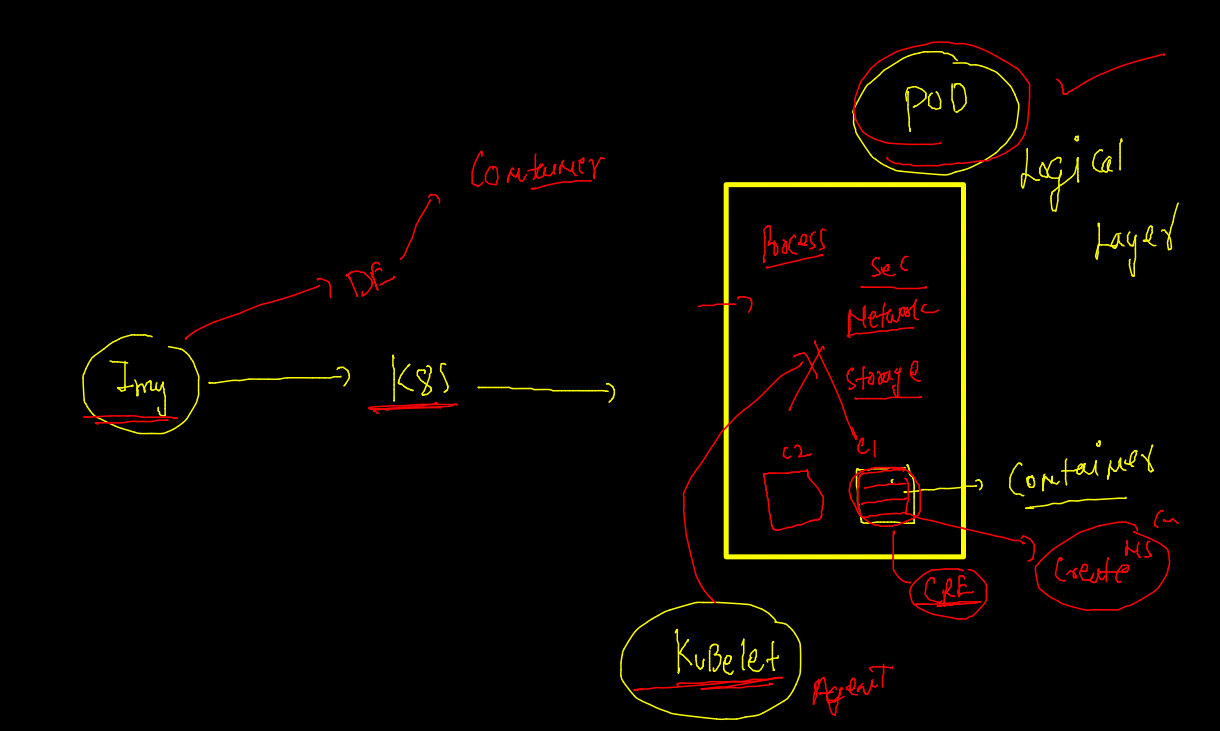 POD
Logical
Layer
Container
DE
Img
K8S
Process
Sec
Network
Storage
C2
C1
Container
NS
Create
CRE
KuBelet
Agent